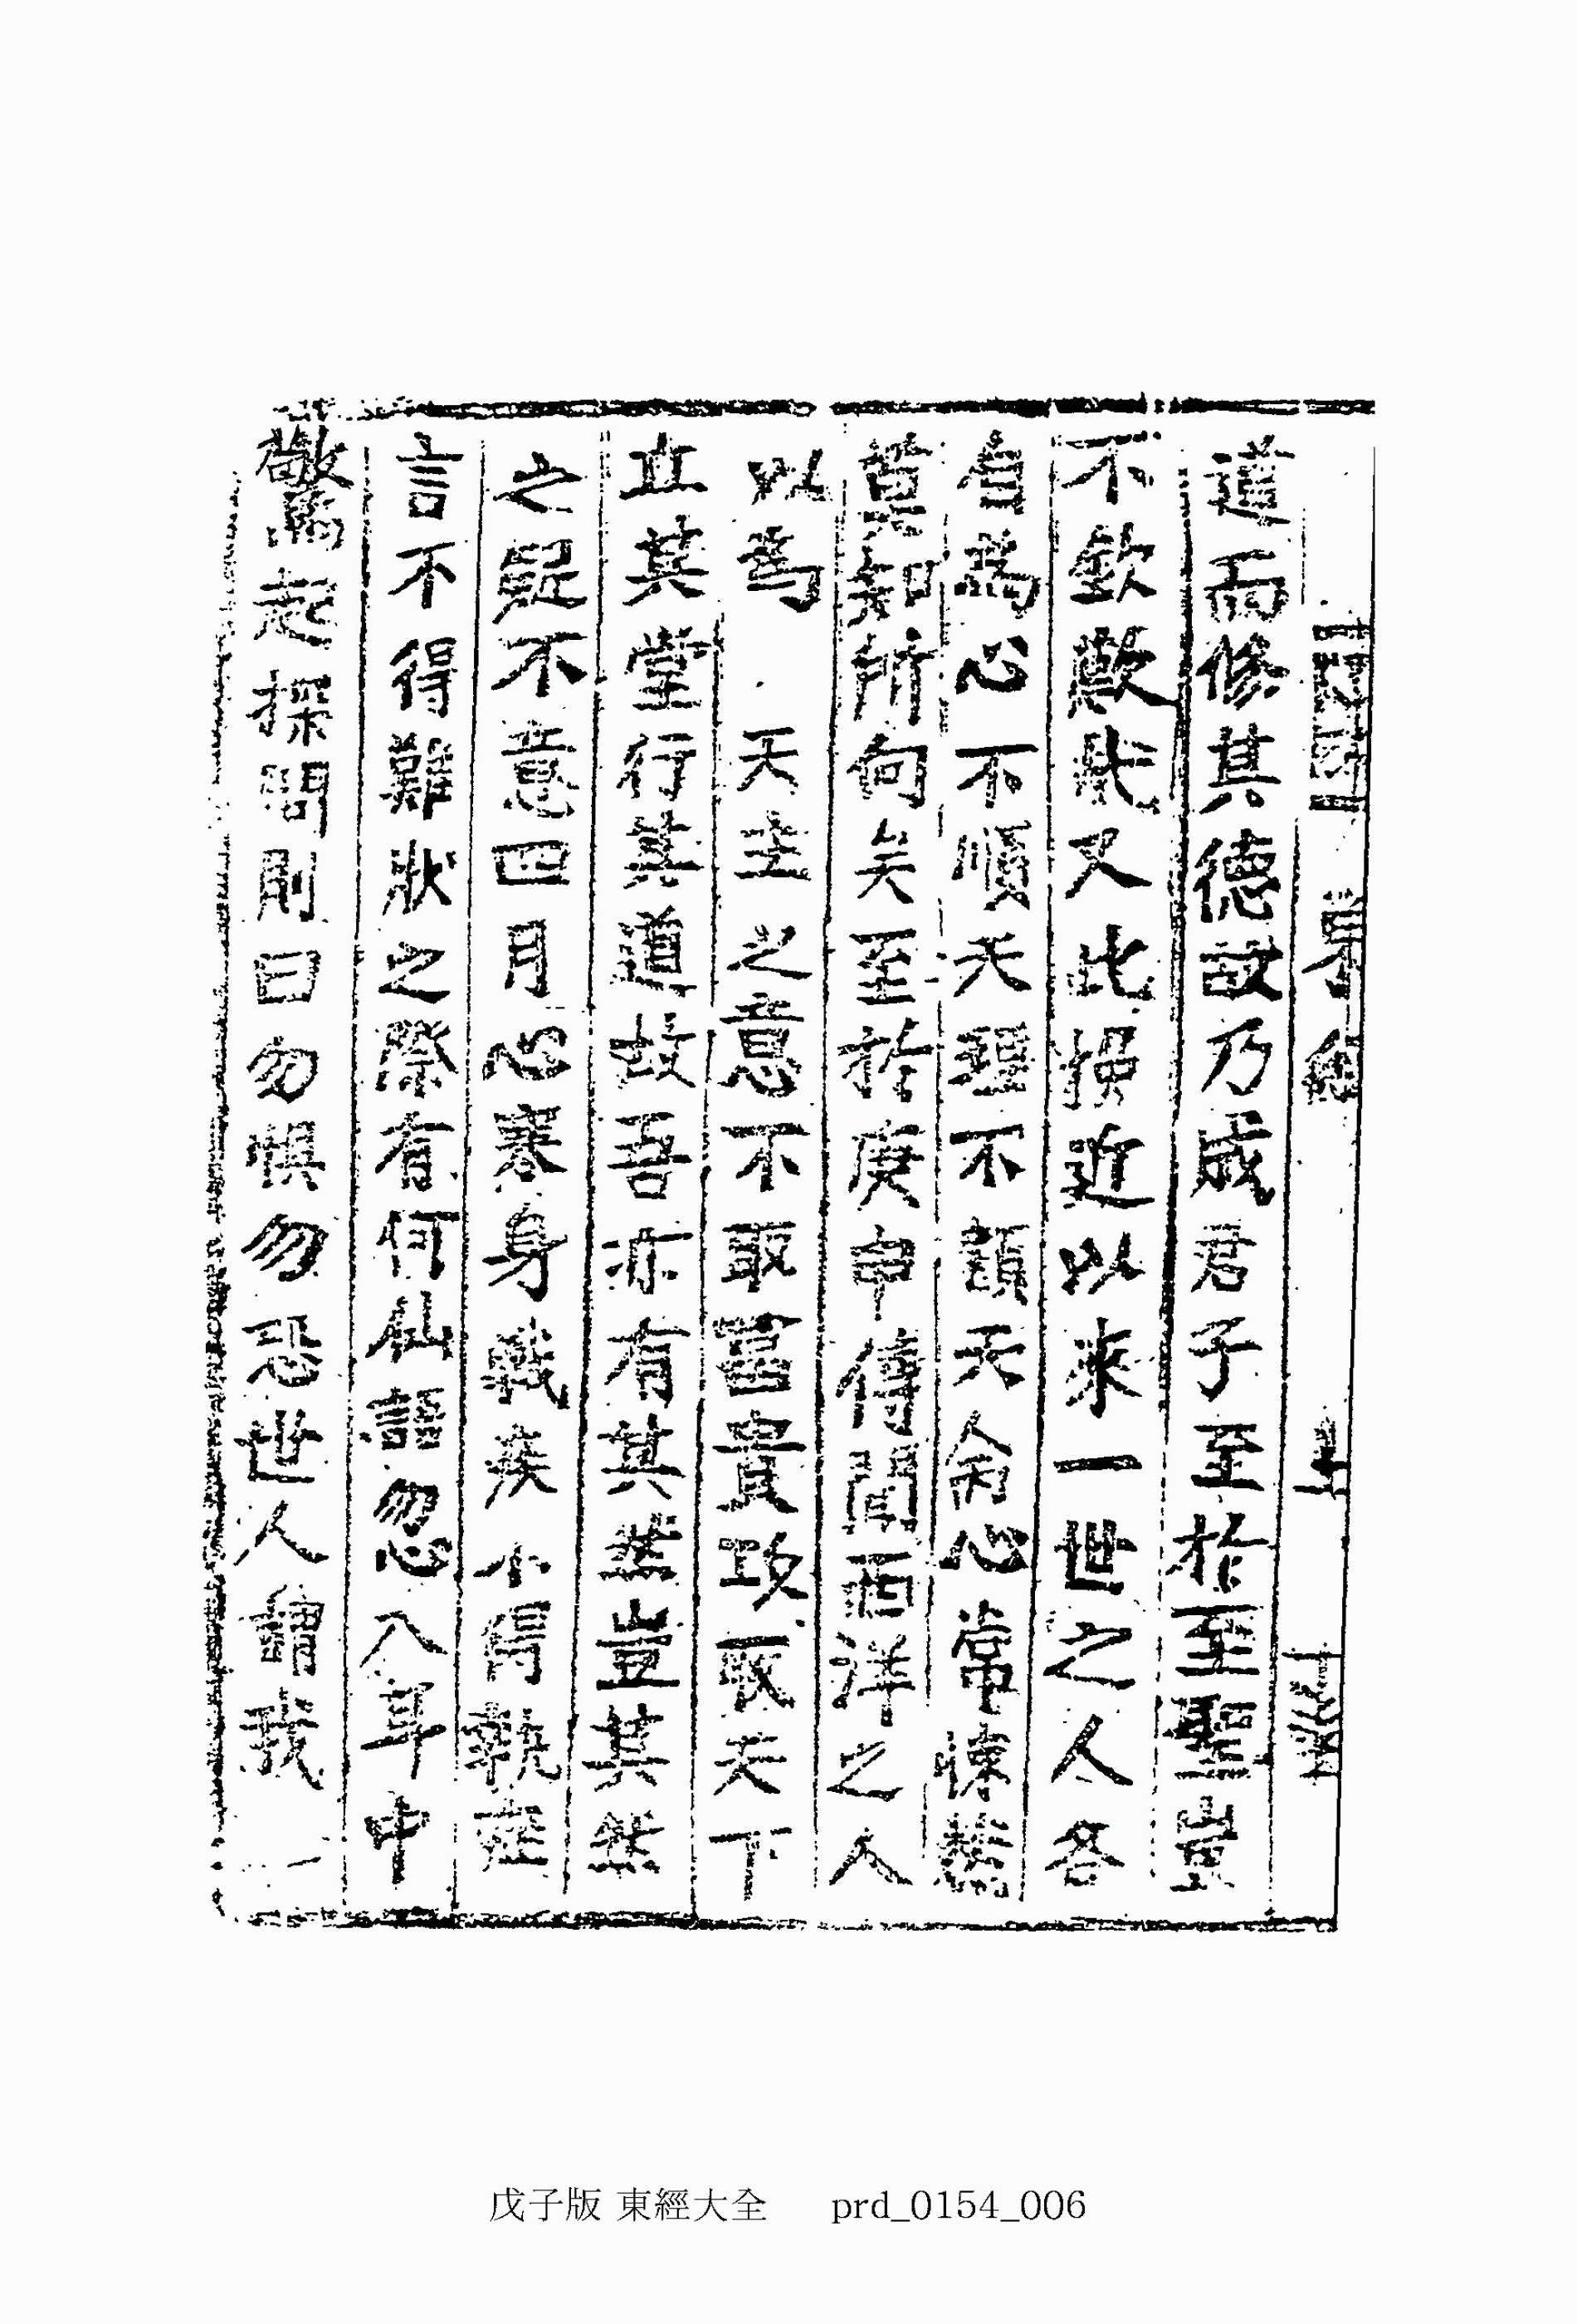 道而修其德故乃成君子至於至聖豈
不欽歎哉又此挽近以來一世之人各
自爲心不順天理不顧天命心常悚然
莫知所向矣至於庚申傳聞西洋之人
以爲 天主之意不取富貴攻取天下
立其堂行其道故吾亦有其然豈其然
之疑不意四月心寒身戰疾不得執症
言不得難狀之際有何仙語忽入耳中
驚起探問則曰勿懼勿恐世人謂我
戊子版 東經大全 prd_0154_006